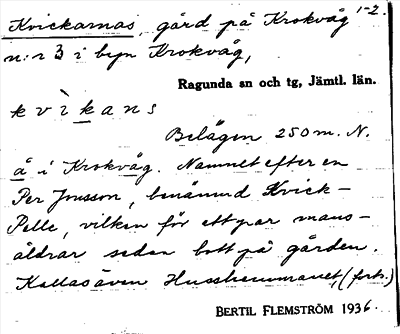 Kvickarnas, gård på Krokvåg 1-2.
n:r 3 i byn Krokvåg,
Ragunda sn och tg, Jämtl. län.
kvìkans
Belägen 250 m. N.
å i Krokvåg. Namnet efter en
Per Jonsson, benämnd Kvick-
Pelle, vilken för ett par mans-
åldrar sedan bott på gården.
Kallas även (forts.)
BERTIL FLEMSTRÖM 1936.